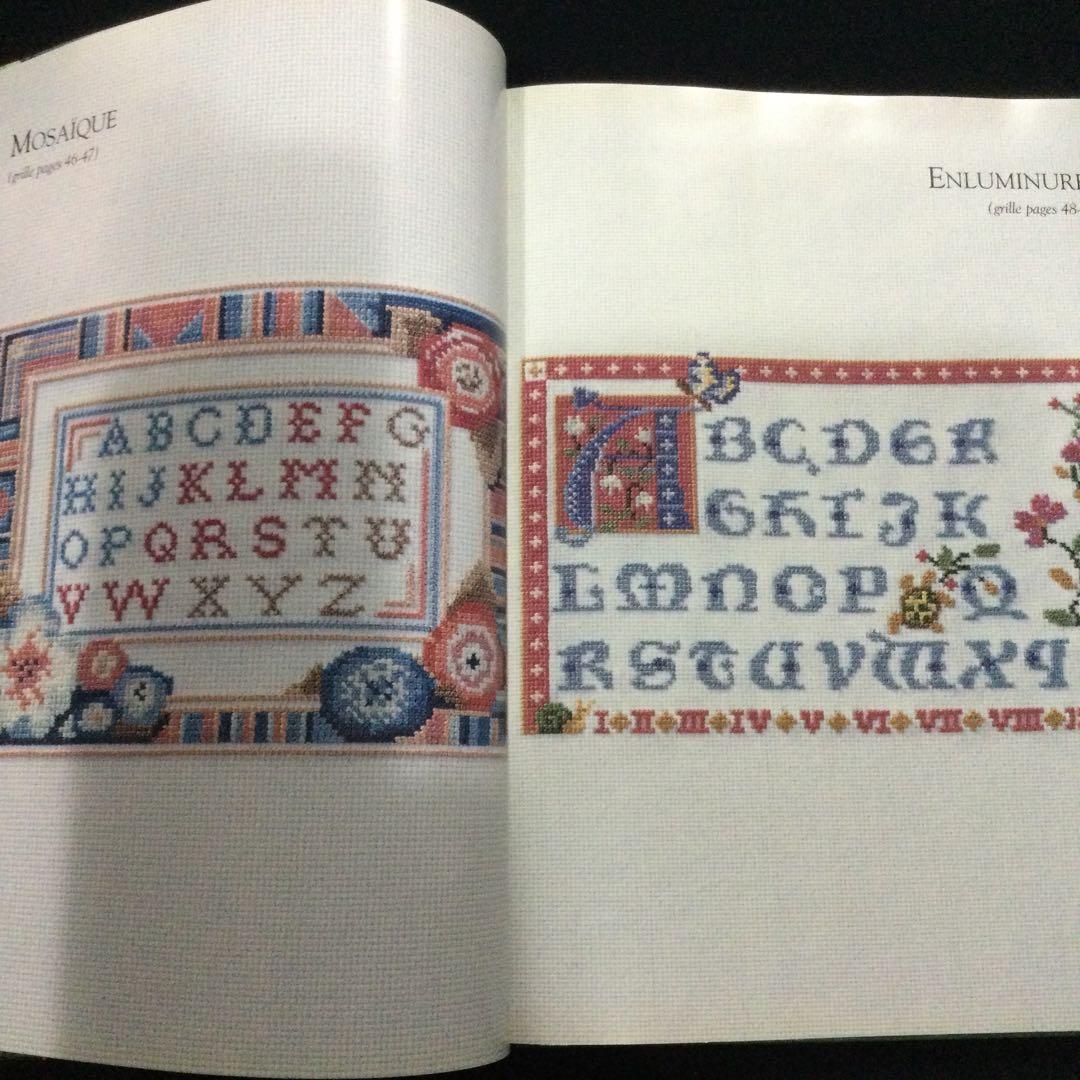 MOSAÏQUE
(grille pages 46-47)
ABCDEFG
HIJKLMN
OPQRSTU
VWXYZ
ENLUMINURE
(grille pages 48-
A BCDEF
GHIJK
LMNOP Q
RSTUVWXY
I II III IV V VI VII VIII